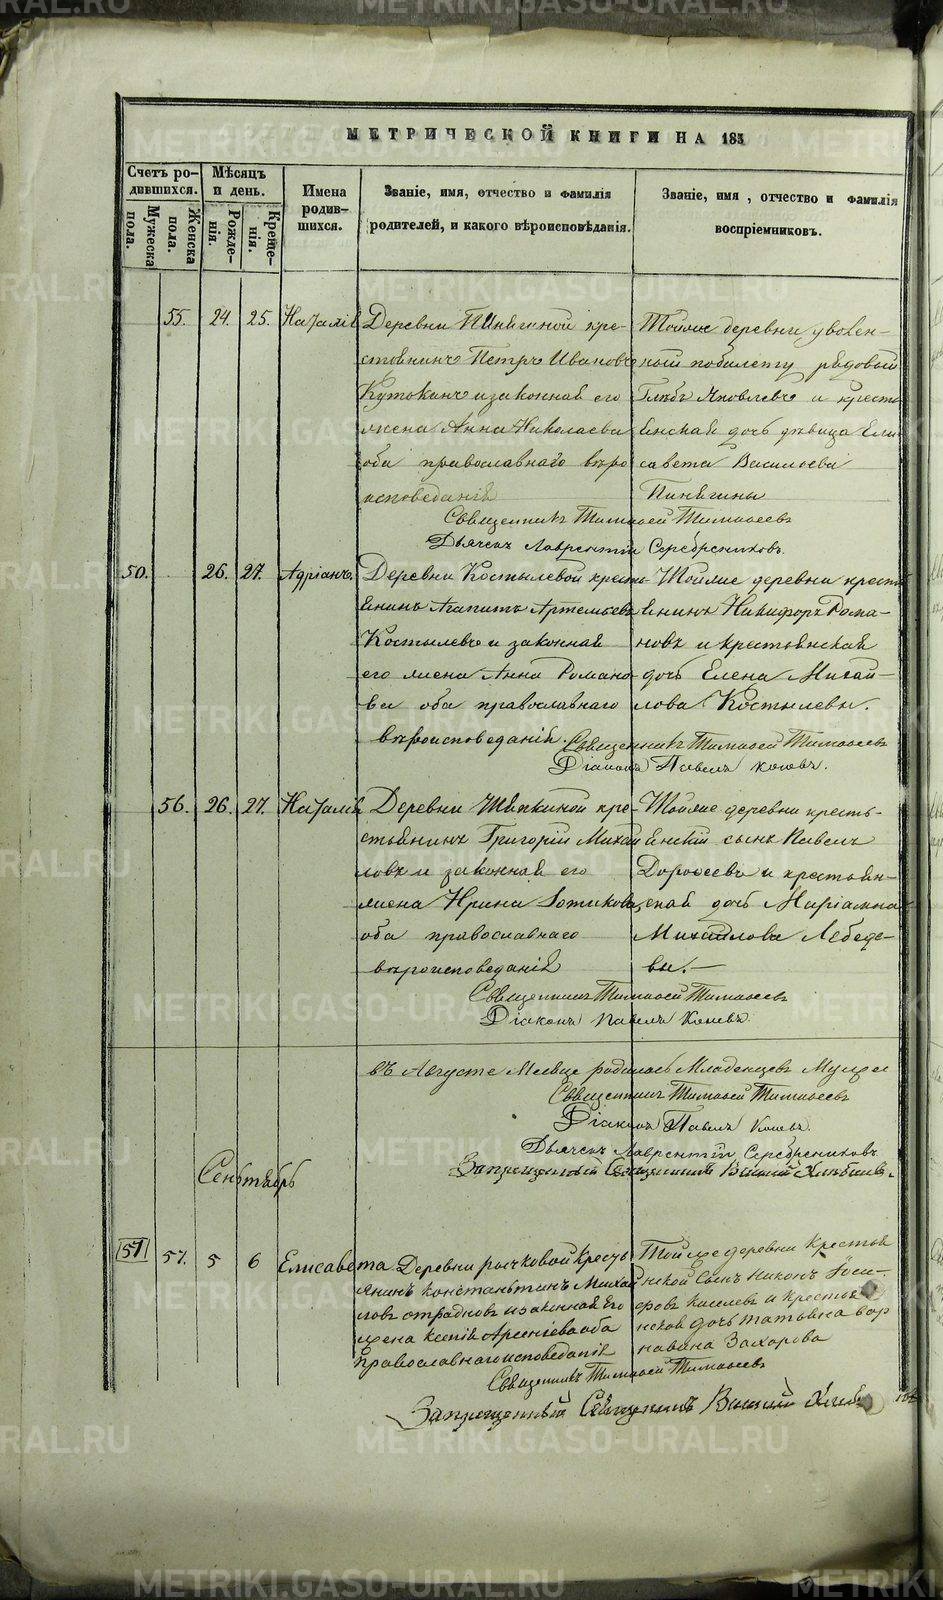 МЕТРИЧЕСКОЙ КНИГИ НА 183
Счетъ родившихся.
Мужеска пола.
Женска пола.
Мѣсяцъ и день.
Рожденія.
Крещенія.
Имена родившихся.
Званіе, имя, отчество и фамилія родителей, и какого вѣроисповѣданія.
Званіе, имя, отчество и фамилія воспріемниковъ.
55. 24. 25. Наталія
Деревни Пинягиной кре-
стьянинъ Петръ Ивановъ
и законная его
жена Анна Николаева
оба православнаго вѣро
исповеданія
Тойже деревни уволен-
ный побилету рядовый
Глѣбъ Яковлевъ и кресть
янская дочь дѣвица Ели
савета Василиева
Пинягины
Священникъ Тимофей Тимофеевъ
Дьячекъ Лаврентій Серебрениковъ.
50. 26. 27. Адріанъ.
Деревни Костылевой кресть-
янинъ Агапитъ Артемьевъ
Костылевъ и законная
его жена Анна Романо-
ва оба православнаго
вѣроисповеданія.
Тойже деревни кресть
янинъ Никифоръ Рома-
новъ и крестьянская
дочь Елена Михай-
лова Костылевы.
Священникъ Тимофей Тимофеевъ
Діаконъ Павелъ
56. 26. 27. Наталія
Деревни кре-
стьянинъ Григорій Михай
ловъ и законная его
жена Ирина Фотиова,
оба православнаго
вѣроисповеданія
Тойже деревни кресть-
янскій сынъ Павелъ
Дорофеевъ и крестьян-
ская дочь Маріамна
Михайлова Лебеде-
вы.
Священникъ Тимофей Тимофеевъ
Діаконъ Павелъ
въ Августе Месяце родилось Младенцевъ Мужес
Священникъ Тимофей Тимофеевъ
Діаконъ Павелъ
Дьячекъ Лаврентій Серебрениковъ.
Запрещенный Священникъ Василій
Сентябрь
51 57. 5 6 Елисавета
Деревни рычковой Кресть
янинъ константинъ Михай
ловъ отрадновъ изаконная Его
жена ксенія Арсеніева оба
Православнагоисповеданія
Тойже деревни Крестья
нской Сынъ никонъ
киселевъ и крестья
нская дочь татьяна вар
Захарова
Священникъ Тимофей Тимофеевъ
Запрещенный Священникъ Василій
METRIKI.GASO-URAL.RU